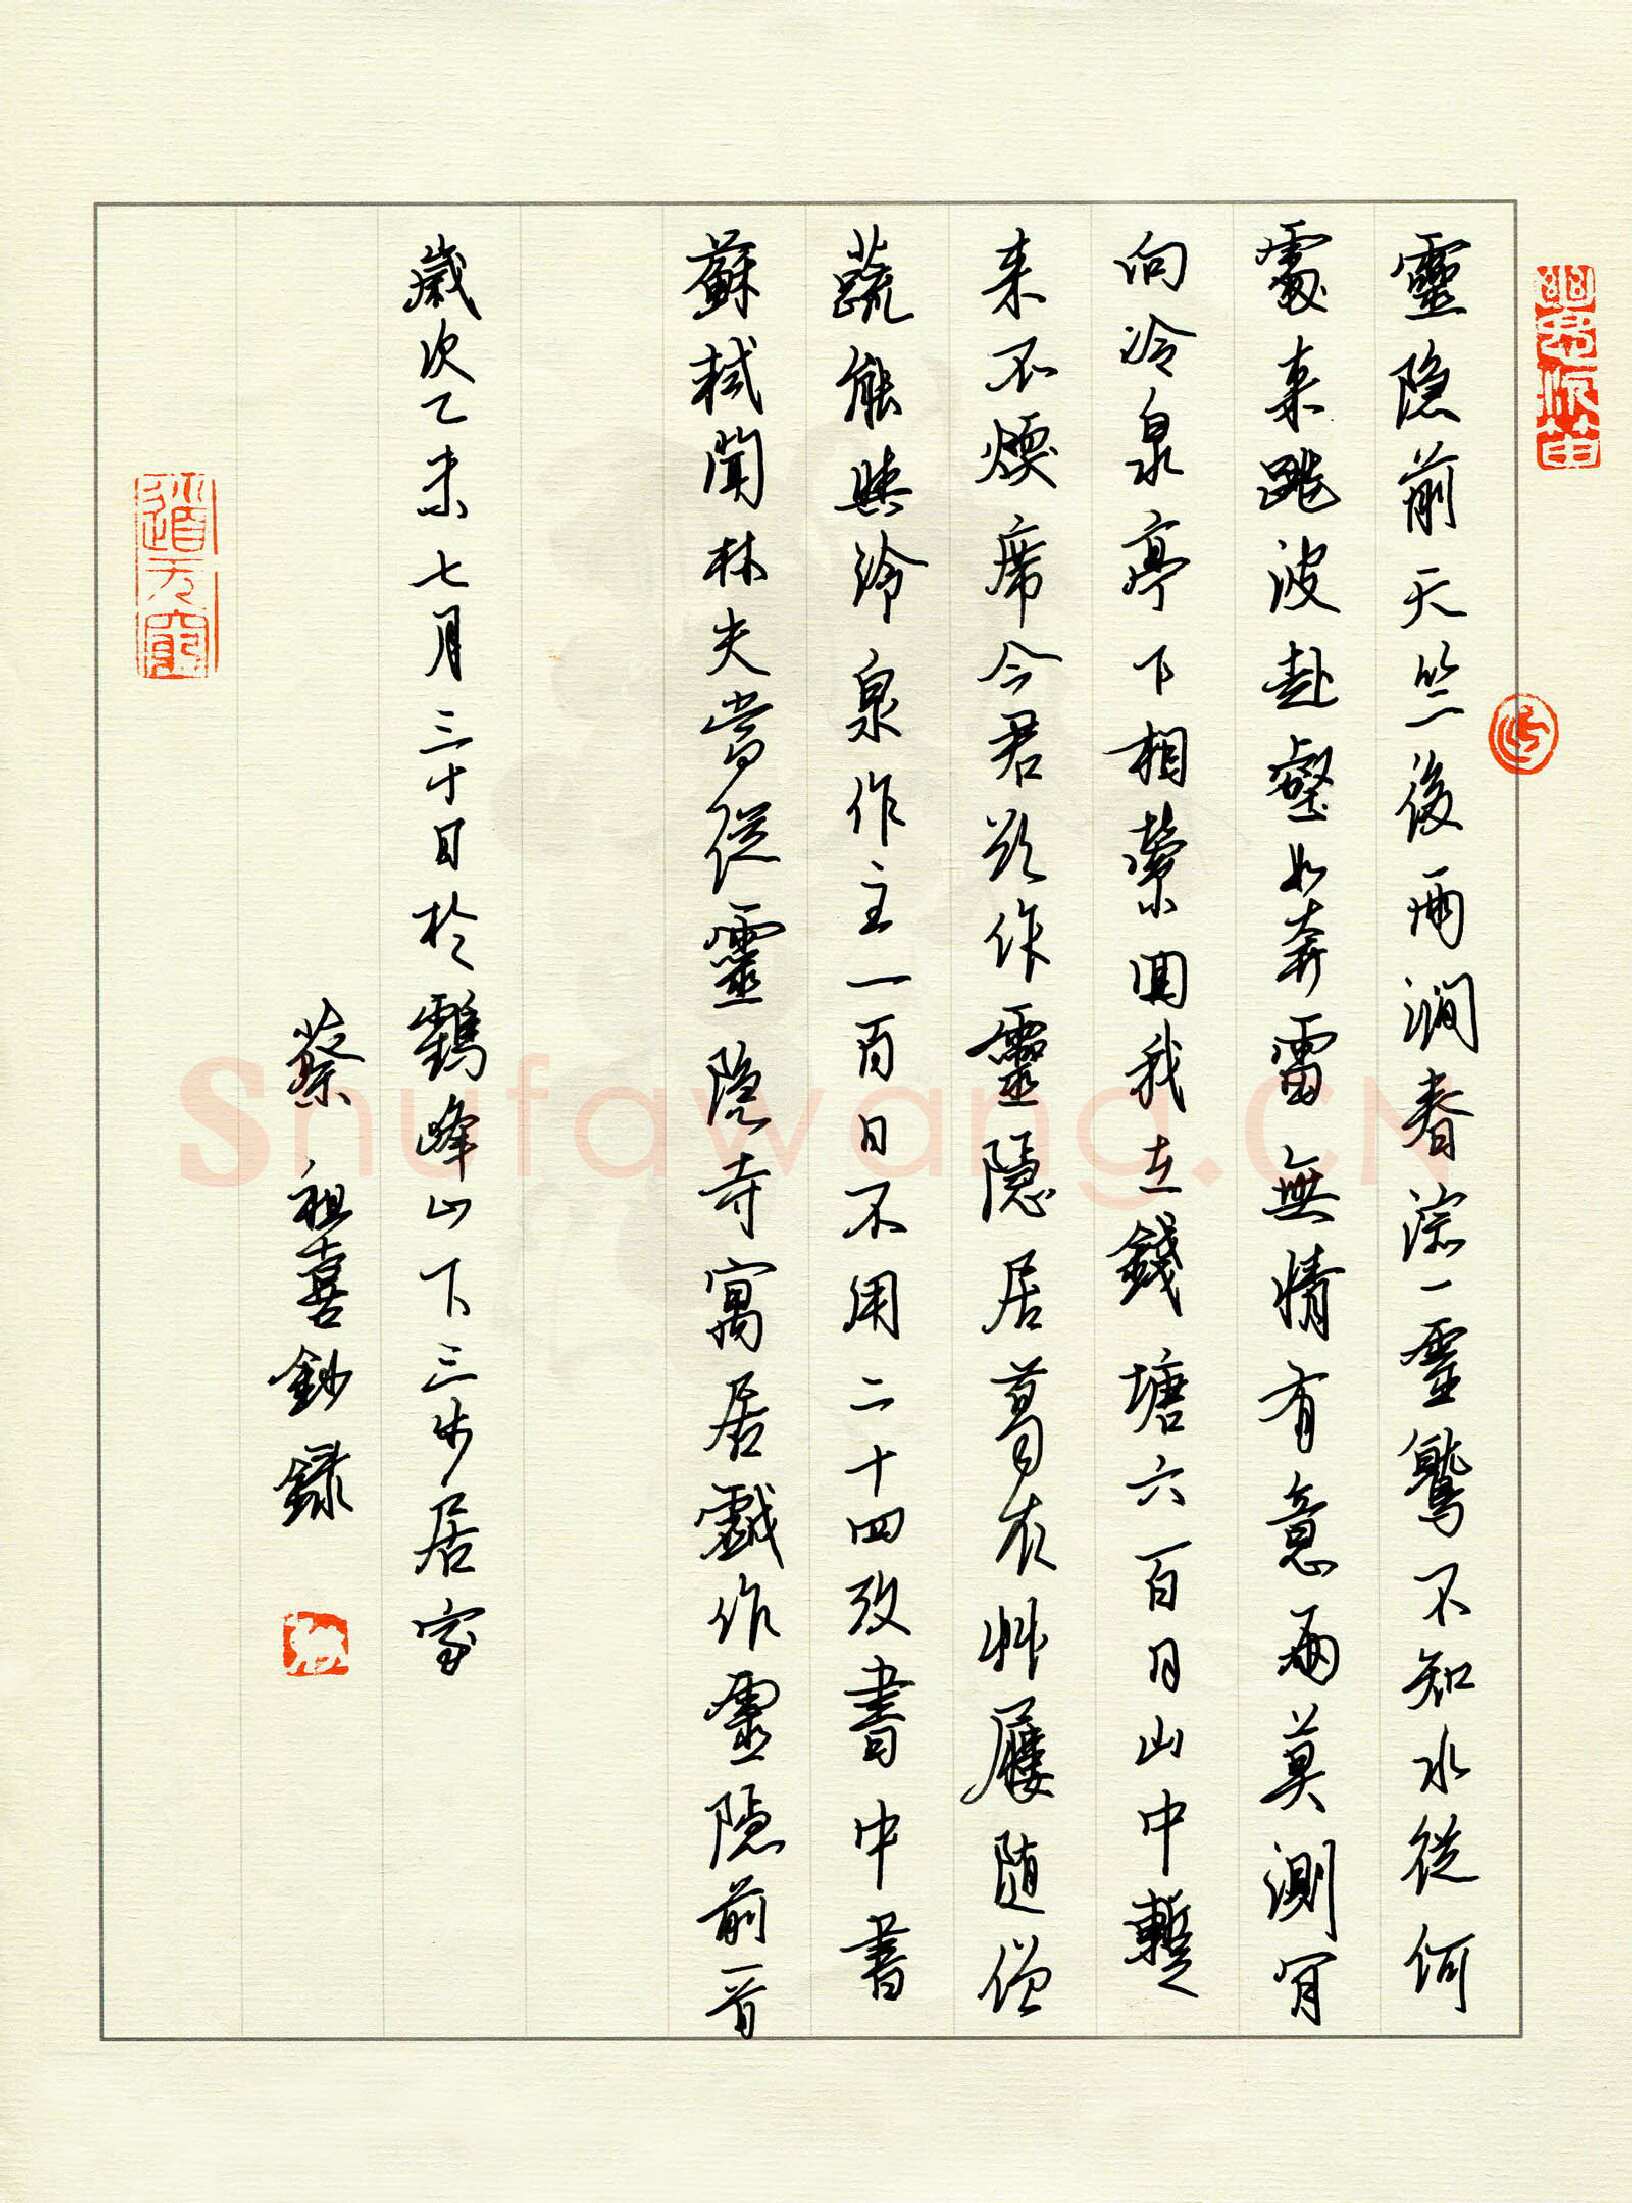 靈隐前天竺後兩澗春淙一靈鷲不知水從何
處来跳波赴壑如奔雷無情有意兩莫測肎
向冷泉亭下相縈回我在錢塘六百日山中暫
来不煗席今君欲作靈隱居葛衣艸屨随僧
蔬能與冷泉作主一百日不用二十四攷書中書
蘇軾聞林夫當徙靈隐寺寓居戲作靈隐前一首
歲次乙未七月三十日於鶴峰山下三步居家
蔡祖喜鈔録
道无窮
Shufawang.CN